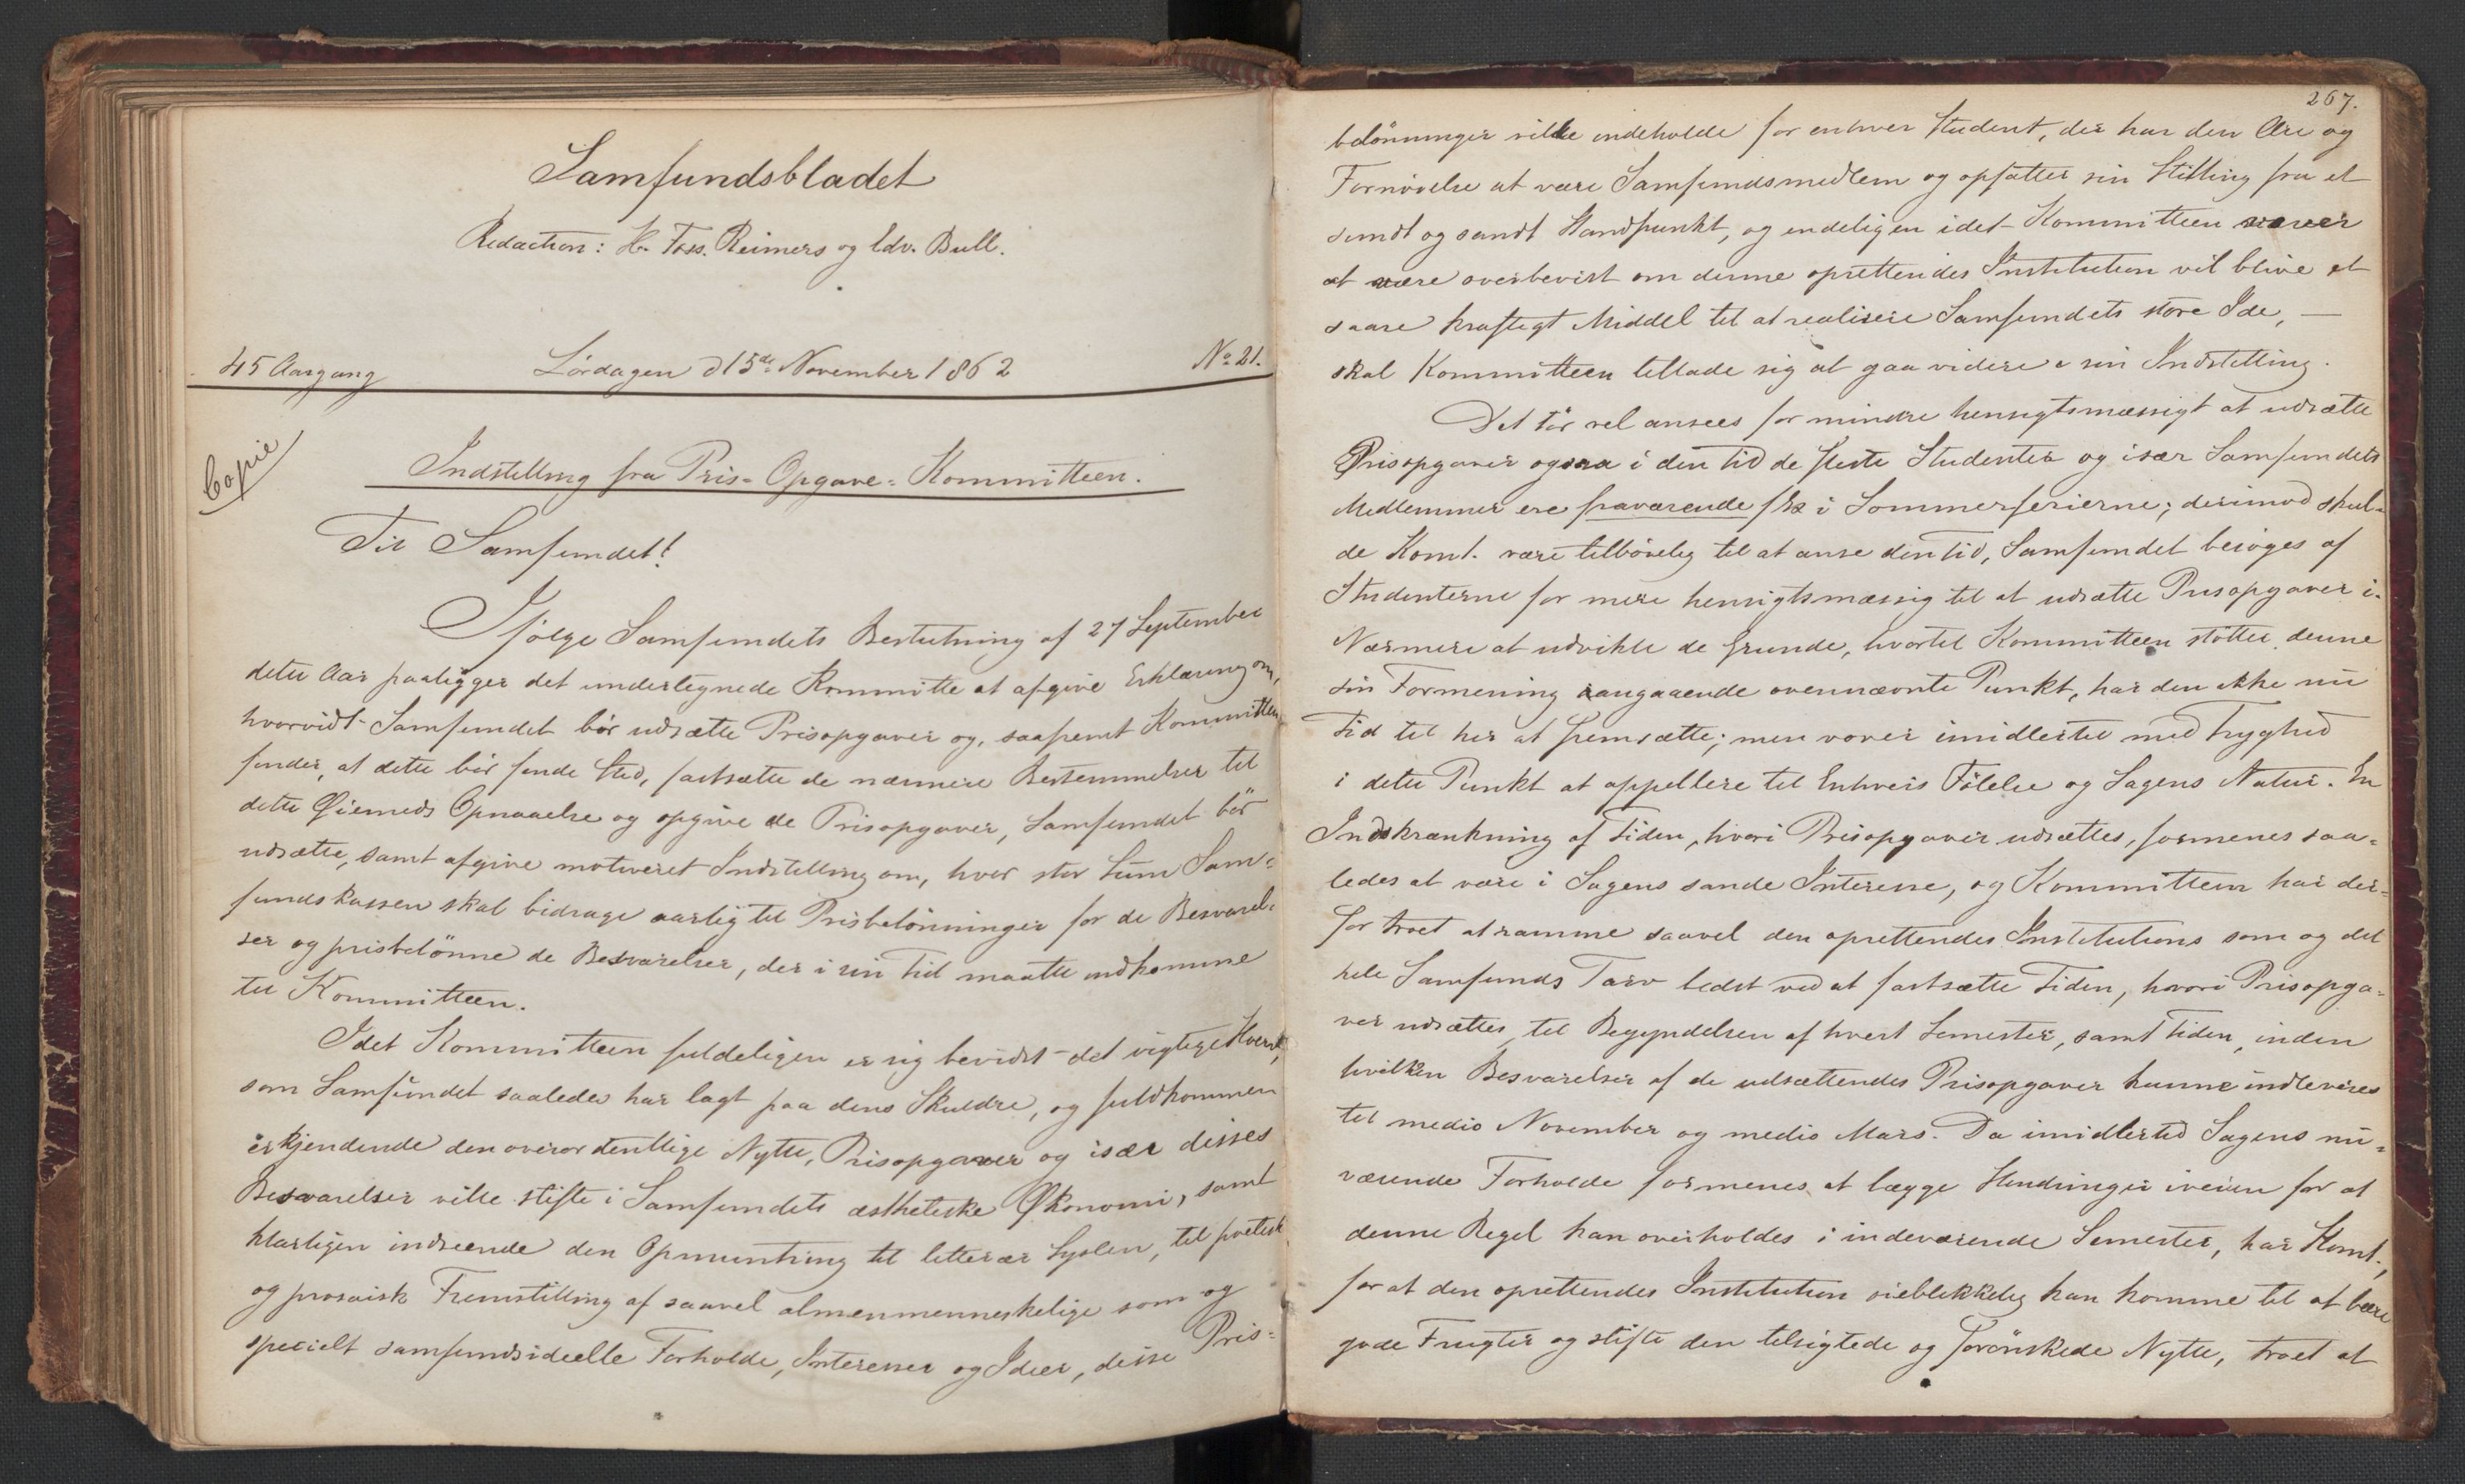 Samfundsbladet
Redaction: H. Foss. Reimers og Edv. Bull.
45 Aargang Lördagen d 15de November 1862 No 21.
Copie
Indstilling fra Pris-Opgave-Kommitteen.
Til Samfundet!
Ifölge Samfundets Beslutning af 27 September
dette Aar paaligger det undertegnede Kommitte at afgive Erklæring om,
hvorvidt Samfundet bör udsætte Prisopgaver og, saafremt Kommitteen
finder, at dette bör finde Sted, fastsætte de nærmere Bestemmelser til
dette Øiemeds Opnaaelse og opgive de Prisopgaver, Samfundet bör
udsætte, samt afgive motiveret Indstilling om, hvor stor Sum Sam=
fundskassen skal bidrage aarlig til Prisbelönninger for de Besvarel=
ser og prisbelönne de Besvarelser, der i sin Tid maatte indkomme
til Kommitteen.
Idet Kommitteen fuldeligen er sig bevidst det vigtige Hverv,
som Samfundet saaledes har lagt paa dens Skuldre, og fuldkommen
erkjendende den overordentlige Nytte, Prisopgaver og især disses
Besvarelser ville stifte i Samfundets æsthetiske Økonomi, samt
klarligen indseende den Opmuntring til litterær Syslen, til poetisk
og prosaisk Fremstilling af saavel almenmenneskelige som og
specielt samfundsideelle Forholde, Interesser og Ideer, disse Pris=
267.
belönninger ville indeholde for enhver Student, der har den Ære og
Fornöielse at være Samfundsmedlem og opfatter sin Stilling fra et
sundt og sandt Standpunkt, og endeligen idet Kommitteen vover
at være overbevist om denne oprettendes Institution vil blive et
saare kraftigt Middel til at realisere Samfundets store Ide, —
skal Kommitteen tillade sig at gaa videre i sin Indstilling.
Det tör vel ansees for mindre hensigtsmæssigt at udsætte
Prisopgaver ogsaa i den Tid de fleste Studenter og især Samfundets
Medlemmer ere fraværende f Ex i Sommerferierne; derimod skul=
de Komt. være tilböielig til at anse den Tid, Samfundet besöges af
Studenterne for mere hensigtsmæssig til at udsætte Prisopgaver i.
Nærmere at udvikle de Grunde, hvortil Kommitteen stötter denne
sin Formening aangaaende ovennævnte Punkt, har den ikke nu
Tid til her at fremsætte; men vover imidlertid med Tryghed
i dette Punkt at appellere til Enhvers Fölelse og Sagens Natur. En
Indskrænkning af Tiden, hvori Prisopgaver udsættes, formenes saa=
ledes at være i Sagens sande Interesse, og Kommitteen har der=
for troet at ramme saavel den oprettendes Institutions som og det
hele Samfunds Tarv bedst ved at fastsætte Tiden, hvori Prisopga=
ver udsættes, til Begyndelsen af hvert Semester, samt Tiden, inden
hvilken Besvarelser af de udsættendes Prisopgaver kunne indleveres
til medio November og medio Mars. Da imidlertid Sagens nu=
værende Forholde formenes at lægge Hindringer iveien for at
denne Regel kan overholdes i indeværende Semester, har Komt.,
for at den oprettendes Institution oieblikkelig kan komme til at bære
gode Frugter og stifte den tilsigtede og forönskede Nytte, troet at